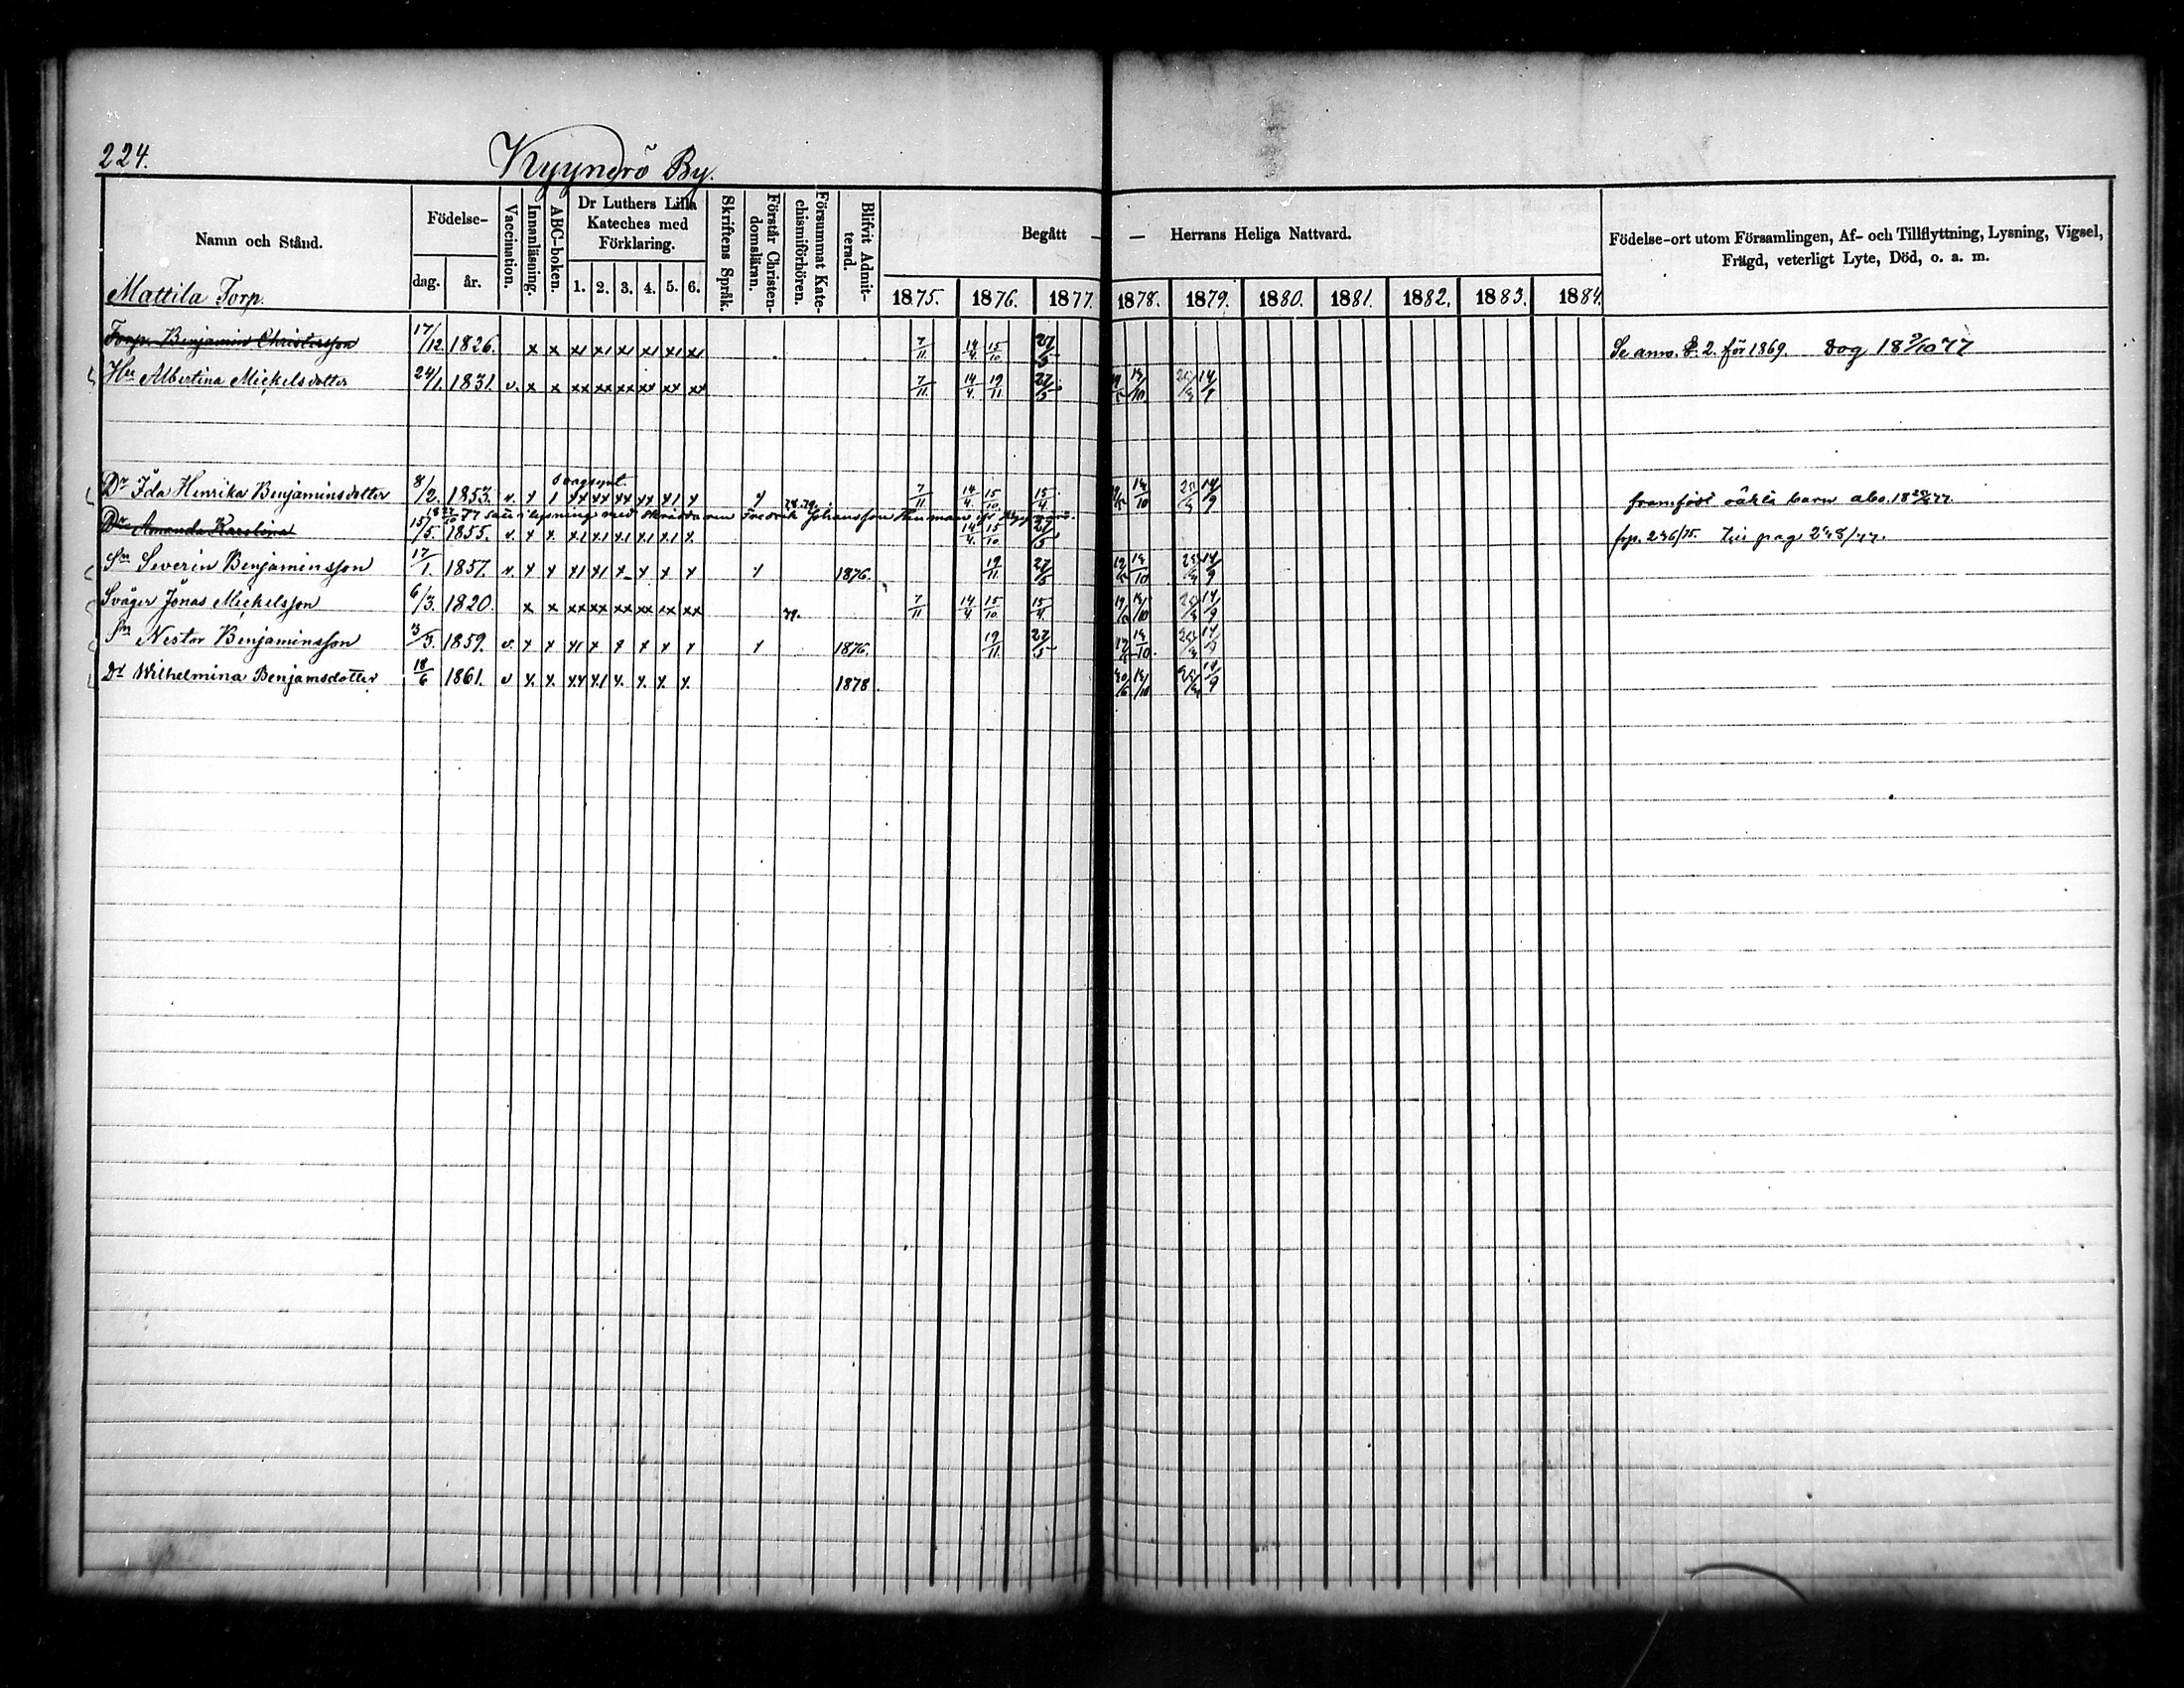 224.
Kyynärö By.
Namn och Stånd.
Födelse-
dag.
år.
Vaccination.
Innanläsning.
ABC-boken.
Dr Luthers Lilla
Kateches med
Förklaring.
1. 2. 3. 4. 5. 6.
Skriftens Språk.
Förstår Christen-
domsläran.
Försummat Kate-
chismiförhören.
Blifvit Admit-
terad.
Begått — — Herrans Heliga Nattvard.
1875. 1876. 1877. 1878. 1879. 1880. 1881. 1882. 1883. 1884.
Födelse-ort utom Församlingen, Af- och Tillflyttning, Lysning, Vigsel,
Frägd, veterligt Lyte, Död, o. a. m.
Mattila Torp.
Torp. Benjamin Christersson 17/12. 1826. x x x1 x1 x1 x1 x1 x1 7/11. 14/4. 15/10. 27/5 Se anm. 2. för 1869. Dog 18 9/10 77
Hu Albertina Mickelsdotter 24/1. 1831. v. x x xx xx xx xx xx xx 7/11. 14/4. 19/11 27/5 14/10 14/9
Dr Ida Henrika Benjaminsdotter 8/2. 1853. v. x 1 xx xx xx xx x1 x 28.79. 7/11 14/4. 15/10. 15/4. 14/10 14/9 framfödt oäkta barn
77 till lysning med skräddaren Fredrik Johansson
Dr Amanda Karolina 15/5. 1855. v. x x x1 x1 x1 x1 x1 x 14/4. 15/10 27/5 frp. 236/75. till pag
Sn Severin Benjaminsson 17/1. 1857. v. x x x1 x1 x x x x 1876. 19/11 27/5 14/10 14/9
Svåger Jonas Mickelsson 6/3. 1820. x x xx xx xx xx xx xx 79. 7/11 14/4 15/10. 15/4. 14/10 14/9
Sn Nestor Benjaminsson 3/3. 1859. v. x x x1 x x x x x 1876. 19/11. 27/5 14/10. 14/9
Dr Wilhelmina Benjamsdotter 18/6 1861. v x. x. xx x1 x. x. x. x. 1878 14/10 14/9